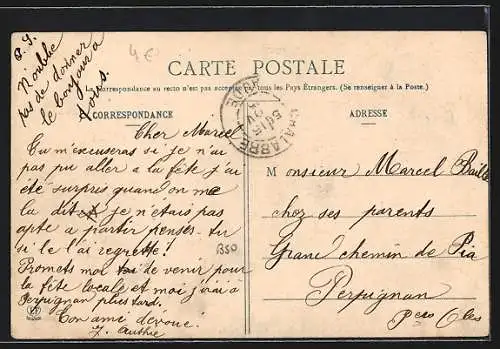 P.S.
N'oublie
pas de donner
le bonjour à
tous.
4 €
CARTE POSTALE
Correspondance au recto n'est pas acceptée par tous les Pays Étrangers. (Se renseigner à la Poste.)
CORRESPONDANCE
ADRESSE
CHALABRE
Cher Marcel
Tu m'excuseras si je n'ai
pas pu aller a la fête j'ai
été surpris quand on me
la dit je n'étais pas
apte a partir penses-tu
si le l'ai regretté!
Promets moi de venir pour
la fête locale et moi j'irai à
Perpignan plus tard.
Ton ami dévoué.
J. Authié
1350
Monsieur Marcel
chez ses parents
Grand chemin de Pia
Perpignan
Pees Oles